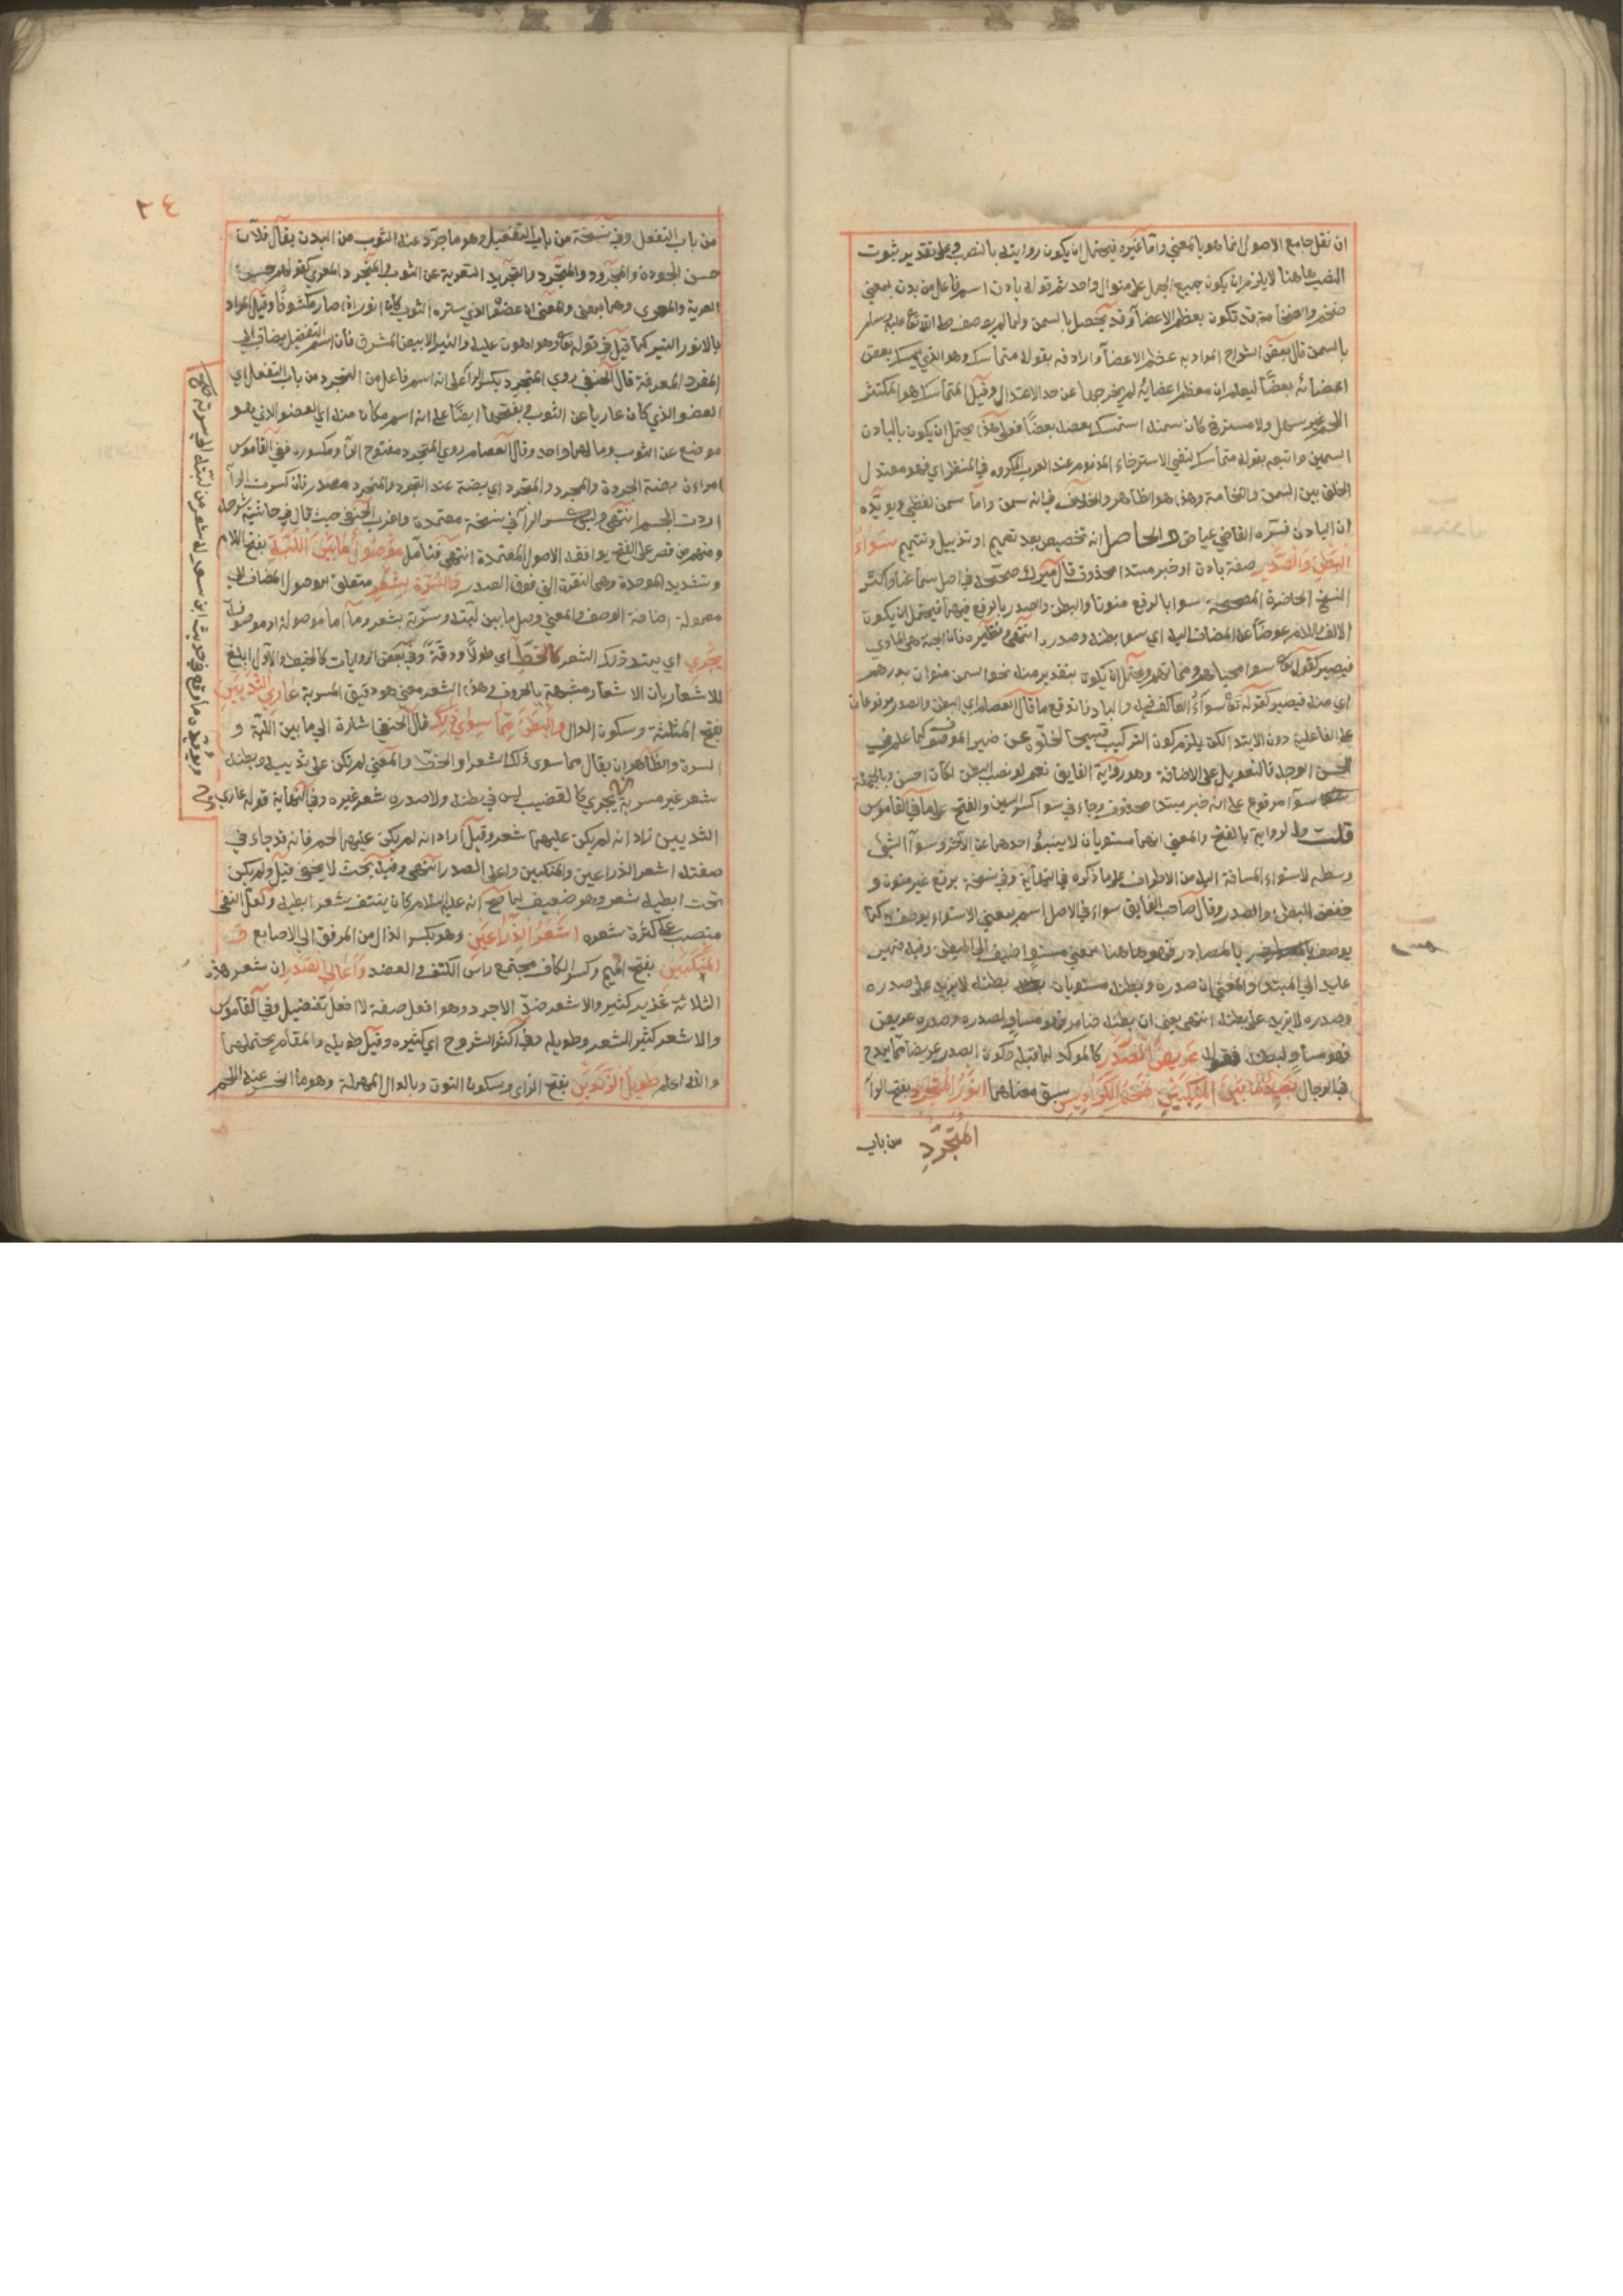 ان نقل جامع الاصول انما هو بالمعني واما غيره فيحتمل ان يكون روايته بالنصب وعلي تقدير ثبوت
النصب هاهنا لا يلزم ان يكون جميع الجمل علي منوال واحد ثم قوله بادن اسم فاعل من بدن بمعني
ضخم والضخامة قد تكون بعظم الاعضآ وقد يحصل بالسمن ولما لم يوصف صلي الله تعالي عليه وسلم
بالسمن قال بعض الشراح المراد به عظم الاعضآ واردفه بقوله متماسك وهو الذي يمسك بعض
اعضائه بعضًا ليعلم ان معظم اعضائه لم يخرجها عن حد الاعتدال وقيل المتماسك هو المكتنز
اللحم غير سهل ولا مسترخ كان سمنه استمسك بعضه بعضًا فعلي هذا يحتمل ان يكون بالبادن
السمين واتبعه بقوله متماسك لنفي الاسترخاء المذموم عند العرب المكروه في المنظر اي فهو معتدل
الخلق بين السمن والنحافة وهذا هو الظاهر والخلاف في انه سمن واما سمن لفظي ويؤيده
ان البادن فسره القاضي عياض والحاصل انه تخصيص بعد تعميم او تذييل وتتميم سَوَاءُ
البَطْنِ وَالصَّدْرِ صفة بادن او خبر مبتدا محذوف قال ميرك صححه في اصل سماعنا واكثر
النسخ الحاضرة المصححة سوا بالرفع منونا والبطن والصدر بالرفع فيهما فيحتمل ان يكون
الالف واللام عوضًا عن المضاف اليه اي سوا بطنه وصدره انتهي ونظيره فان الجنة هي الماوي
فيصير كقوله تعالي سوا محياهم ومماتهم ويحتمل ان يكون بتقدير منه نحو السمن منوان بدرهم
اي منه فيصير كقوله تعالي سوآءً العاكف فيه والباد فاندفع ما قال العصام اي البطن والصدر مرفوعان
علي الفاعلية دون الابتدا لكن يلزم كون التركيب قبيحا لخلوه عن ضمير الموصوف كما علم في
الحسن الوجه فالتعويل علي الاضافة وهو رواية الفايق نعم لو نصب البطن لكان احسن وبالجملة
سوآ مرفوع علي انه خبر مبتدا محذوف وجاء في سوا كسر السين والفتح علي ما في القاموس
قلت والرواية بالفتح والمعني انهما مستويان لا ينبو احدهما عن الآخر وسوآ الشئ
وسطه لاستواء المسافة اليه من الاطراف علي ما ذكره في النهاية وفي نسخة برفع غير منون و
خفض البطن والصدر وقال صاحب الفايق سواء في الاصل اسم بمعني الاستواء يوصف به كما
يوصف بالمصادر فهو هاهنا بمعني مستوٍ اضيف الي البطن وفيه ضمير
عايد الي المبتدا والمعني ان صدره وبطنه مستويان بطنه لا يزيد علي صدره
وصدره لا يزيد علي بطنه انتهي يعني ان بطنه ضامر فهو مساوٍ لصدره وصدره عريض
فهو مساوٍ لبطنه فقوله عَرِيضُ الصَّدْرِ كالموكد لما قبله فكون الصدر عريضا مما يمدح
في الرجال بَعِيدُ مَا بَيْنَ المَنْكِبَيْنِ ضَخْمُ الكَرَادِيسِ سبق معناهما انْوَرُ المُتَجَرَّدِ بفتح الرآ
المُتَجَرِّدِ
من باب
٢٤
من باب التفعل وفي نسخة من باب التفعيل وهو ما جرد عنه الثوب من البدن يقال فلان
حسن الجردة والمجرد والمتجرد والتجريد التعرية عن الثوب والمتجرد المعري كقولهم حسن
العرية والمعري وهما بمعني والمعني ان عضوه الذي ستره الثوب كان انور اذا صار مكشوفًا وقيل المراد
بالانور النير كما قيل في قوله تعالي وهو اهون عليه والنير الابيض المشرق فان اسم التفضيل يضاف الي
المفرد المعرفة قال الحنفي روي المتجرد بكسر الرآ علي انه اسم فاعل من التجرد من باب التفعل اي
العضو الذي كان عاريا عن الثوب وبفتحها ايضًا علي انه اسم مكان منه اي العضو الذي هو
موضع عن الثوب ومالهما واحد وقال العصام روي المتجرد مفتوح الرآ ومكسوره ففي القاموس
امراة بضة الجردة والمجرد والمتجرد اي بضة عند التجرد والمتجرد مصدر فان كسرت الرآ
اردت الجسم انتهي وليس كسر الرآ في نسخة معتمدة واغرب الحنفي حيث قال في حاشية شرحه
ومنهم من قصر علي الفتح يوافقه الاصول المعتمدة انتهي فتامل مَوْصُولُ مَا بَيْنَ اللَّبَّةِ بفتح اللام
وتشديد الموحدة وهي النقرة التي فوق الصدر وَالسُّرَّةِ بِشَعْرٍ متعلق بموصول المضاف الي
معموله اضافة الوصف والمعني وصل ما بين لبته وسرته بشعر وما اما موصولة او موصوفة
يَجْرِي اي يمتد ذلك الشعر كَالْخَطِّ اي طولًا ودقةً وفي بعض الروايات كالخيط والاول ابلغ
للاشعار بان الاشعار مشبهة بالحروف وهذا الشعر معني هو دقيق المسربة عَارِي الثَّدْيَيْنِ
بفتح المثلثة وسكون الدال وَالْبَطْنِ مِمَّا سِوَي ذَلِكَ قال الحنفي اشارة الي ما بين اللبة و
السرة والظاهر ان يقال مما سوي ذلك الشعر او الخط والمعني لم يكن علي ثدييه وبطنه
شعر غير مسربة يجري كالقضيب ليس في بطنه ولا صدره شعر غيره وفي النهاية قوله عاري
الثديين زاد انه لم يكن عليهما شعر وقيل اراد انه لم يكن عليهما لحم فانه قد جاء في
صفته اشعر الذراعين والمنكبين واعلي الصدر انتهي وفيه بحث لا يخفي قيل ولم يكن
تحت ابطيه شعر وهو ضعيف لما صح انه عليه السلام كان ينتف شعر ابطيه ولعل النفي
منصب علي كثرة شعره اشْعَرُ الذِّرَاعَيْنِ وهو بكسر الذال من المرفق الي الاصابع وَ
المَنْكِبَيْنِ بفتح الميم وكسر الكاف مجتمع راس الكتف والعضد وَأَعَالِي الصَّدْرِ ان شعر هذه
الثلاثة غزير كثير والاشعر ضد الاجرد وهو افعل صفة لا افعل تفضيل وفي القاموس
والاشعر كثير الشعر وطويله وفي اكثر الشروح اي كثيره وقيل طويله والمقام يحتملهما
والله اعلم طَوِيلُ الزَّنْدَيْنِ بفتح الزاي وسكون النون وبالدال المهملة وهو ما انحسر عنه اللحم
ويؤيده ما وقع في حديث ابن سعد له شعر من لبته الي سرته